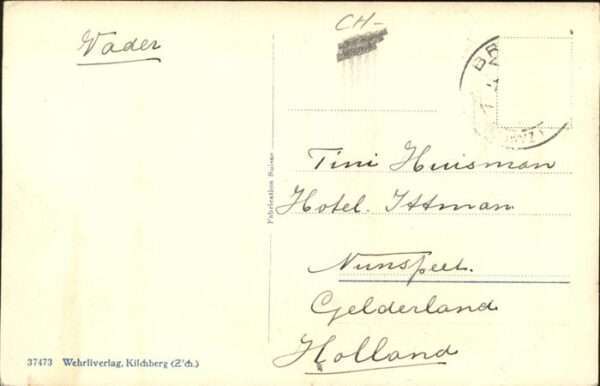 CH-
Vader
BR
Tini Huisman
Hotel. Ittman
Nunspeet.
Gelderland
Holland
Fabrication Suisse
37473 Wehrliverlag, Kilchberg (Z'ch.)